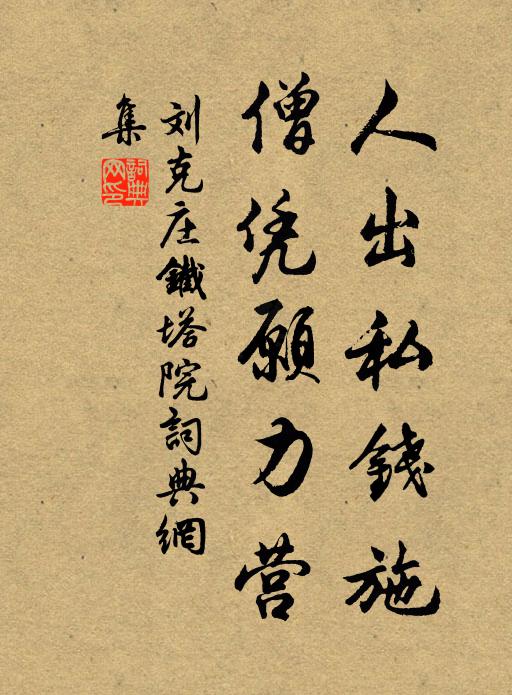 人出私錢施
僧凭願力营
刘克庄鐵塔院詞典網
集
詞典网印